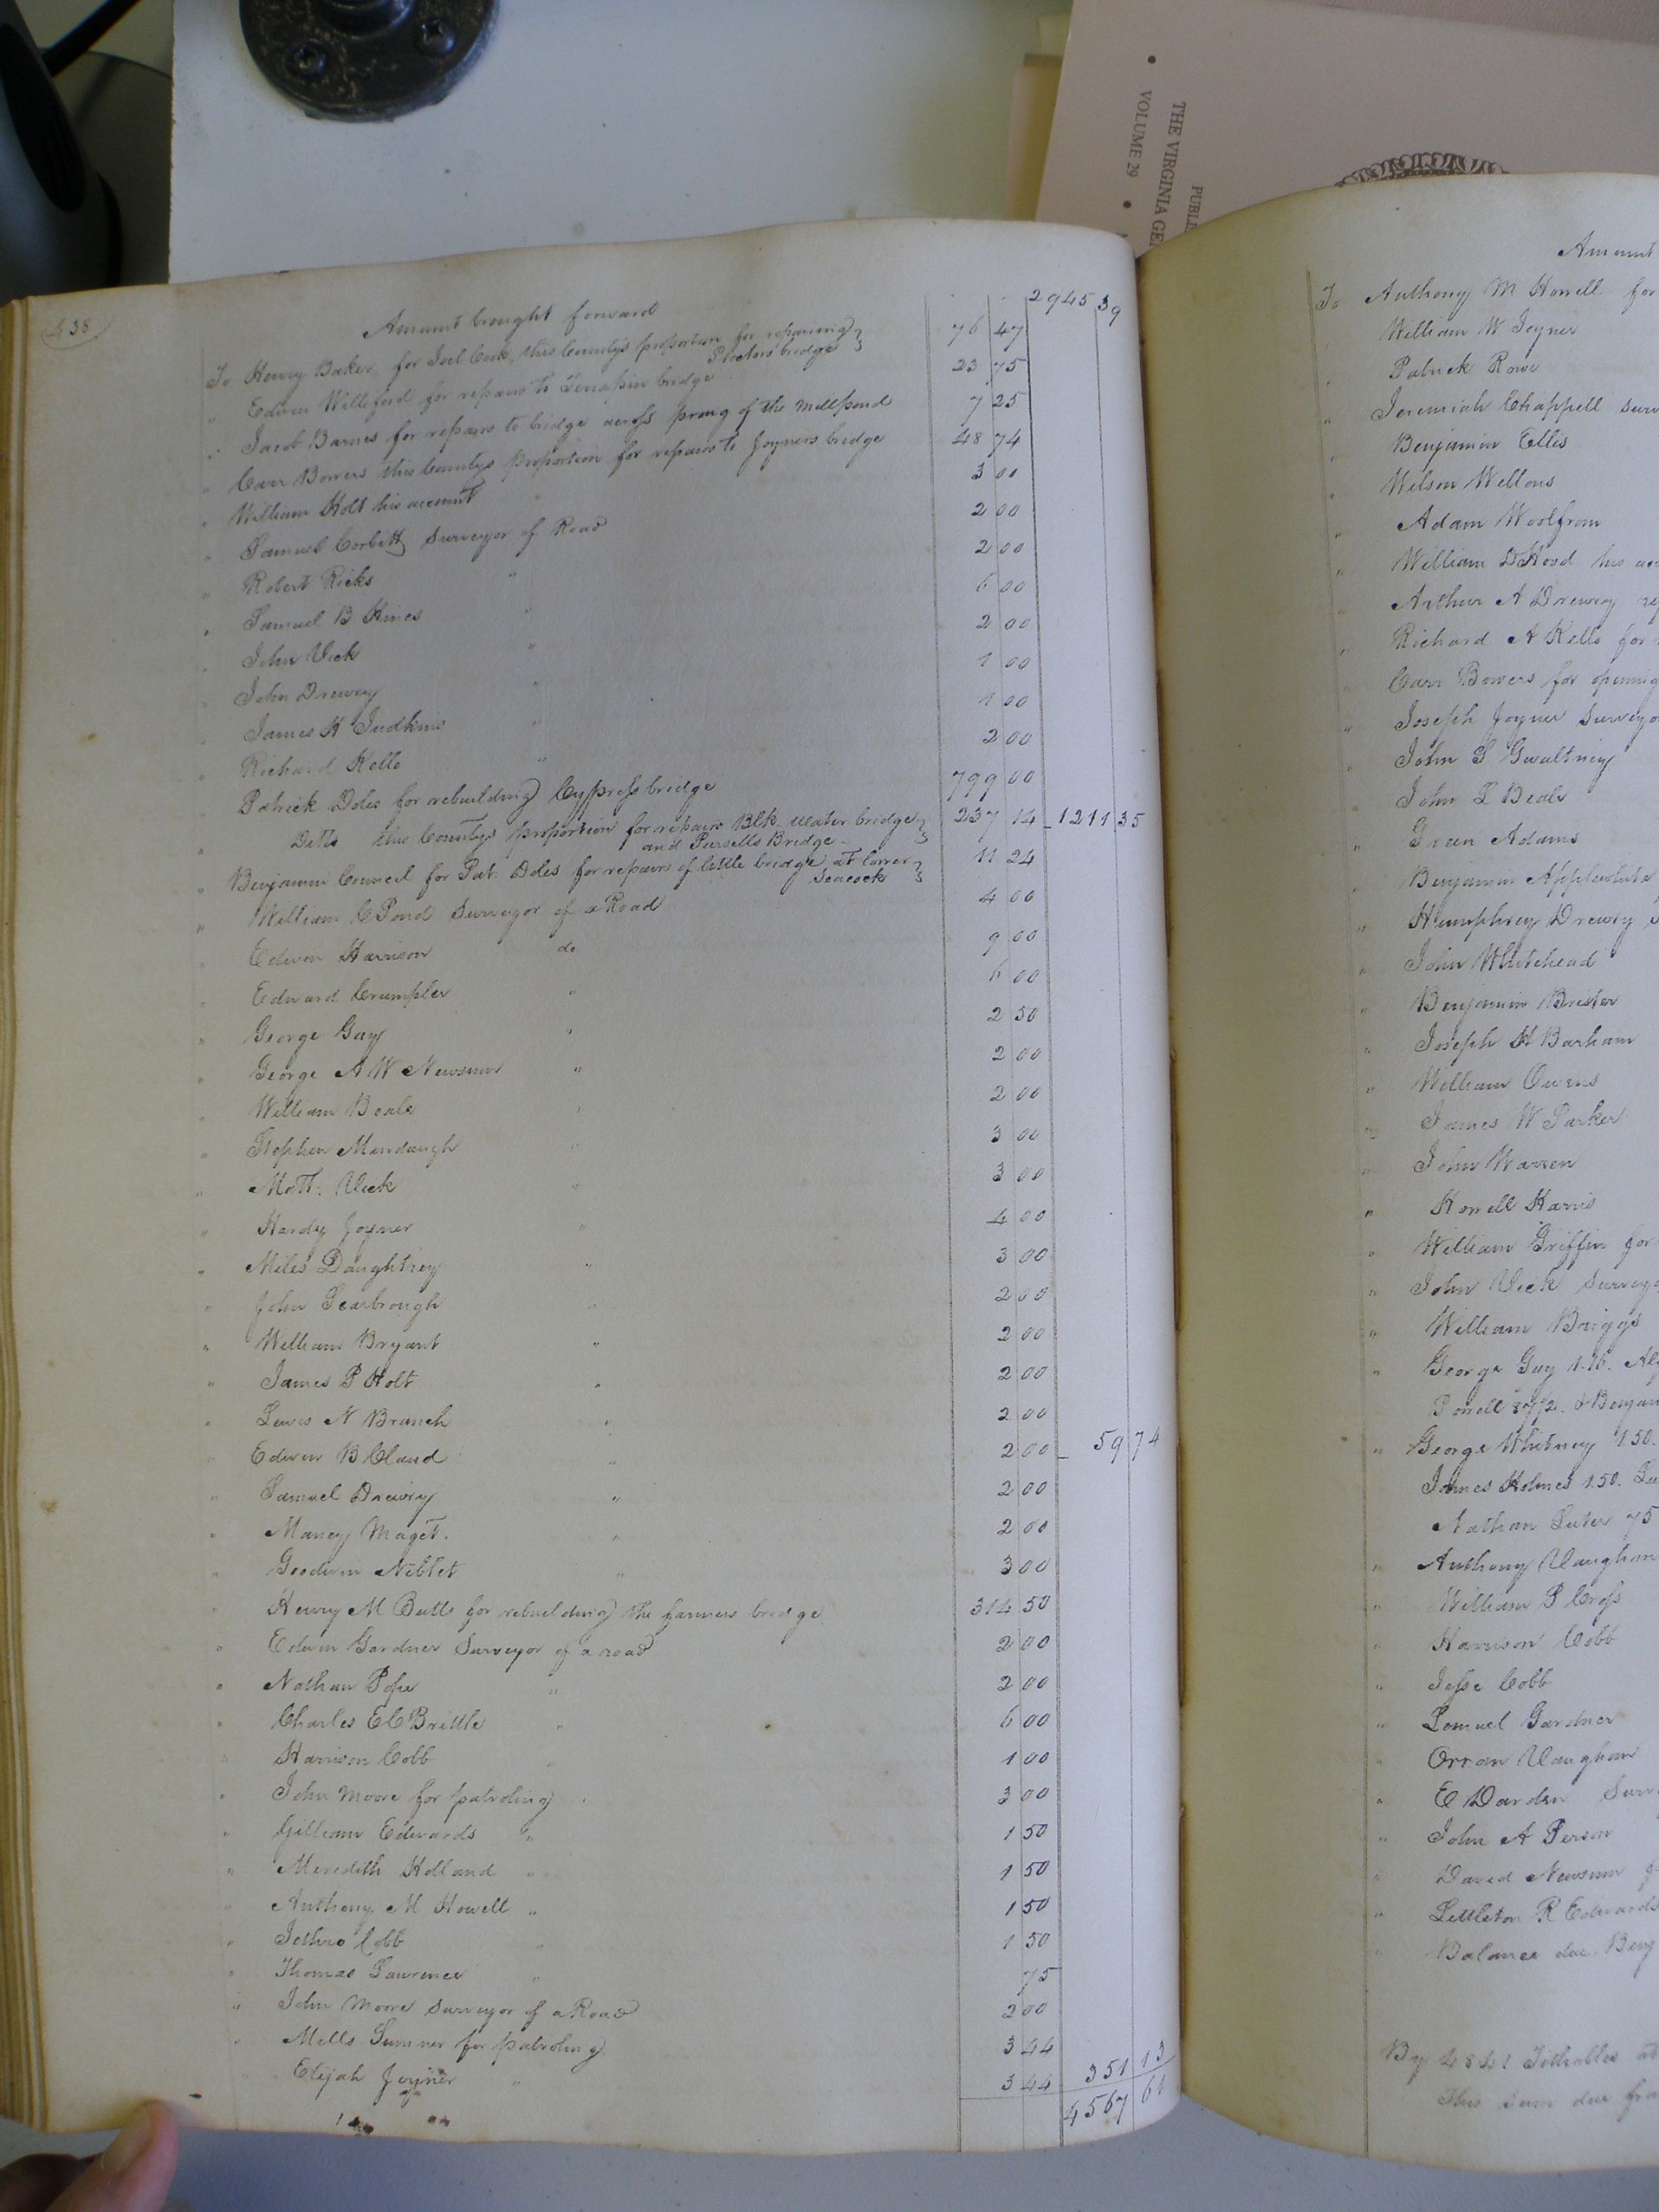 PUBLI
THE VIRGINIA GE
• VOLUME 29 •
438
Amount brought forward 2945 39
To Henry Baker for Joel Cook, this County's proportion for repairing 76 47
Proctors bridge
" Edwin Williford for repairs to Terrapin bridge 23 75
" Jacob Barnes for repairs to bridge across prong of the Millpond 7 25
" Carr Bowers this Countys proportion for repairs to Joyners bridge 48 74
" William Holt his account 3 00
" Samuel Corbitt Surveyor of Road 2 00
" Robert Ricks " 2 00
" Samuel B Hines " 6 00
" John Vick " 2 00
" John Drewry " 1 00
" James H Judkins " 1 00
" Richard Kello " 2 00
" Patrick Doles for rebuilding Cypress bridge 799 00
" Ditto this Countys proportion for repairs Blk. water bridge 237 14 1211 35
and Pursells Bridge
" Benjamin Council for Pat. Doles for repairs of little bridge at lower 11 24
Seacock
" William C Pond Surveyor of a Road 4 00
" Edwin Harrison do 9 00
" Edward Crumpler " 6 00
" George Gay " 2 50
" George A W Newsum " 2 00
" William Beale " 2 00
" Stephen Mundaugh " 3 00
" Matt: Vick " 3 00
" Hardy Joyner " 4 00
" Miles Daughtrey " 3 00
" John Scarbrough " 2 00
" William Bryant " 2 00
" James P Holt " 2 00
" Lewis N Branch " 2 00
" Edwin B Claud " 2 00 59 74
" Samuel Drewry " 2 00
" Maney Maget. " 2 00
" Goodwin Niblet " 3 00
" Henry M Butts for rebuilding the farmers bridge 314 50
" Edwin Gardner Surveyor of a road 2 00
" Nathan Pope " 2 00
" Charles E C Brittle " 6 00
" Harrison Cobb " 1 00
" John Moore for patroling 3 00
" Gilliam Edwards " 1 50
" Meredith Holland " 1 50
" Anthony M Howell " 1 50
" Jethro Cobb " 1 50
" Thomas Lawrence " 75
" John Moore Surveyor of a Road 2 00
" Mills Sumner for patroling 3 44
" Elijah Joyner " 3 44 351 13
4567 61
Amount
To Anthony M Howell for
William W Joyner
" Patrick Rowe
" Jeremiah Chappell Surv
" Benjamin Ellis
" Wilson Wellons
" Adam Woolfrom
" William D Hood his acc
" Arthur A Drewry
" Richard A Kello for
" Carr Bowers for opening
" Joseph Joyner Surveyo
" John S Gwaltney
" John L Beale
" Green Adams
" Benjamin Applewhite
" Humphrey Drewry
" John Whitehead
" Benjamin Brister
" Joseph H Barham
" William Owens
" James W Parker
" John Warren
" Howell Harris
" William Griffin for
" John Vick Survey
" William Briggs
" George Gay 1.16.
Powell & Benjam
" George Whitney 1.50.
James Holmes 1.50.
Nathan Luter 75
" Anthony Vaughan
" William P Cross
" Harrison Cobb
" Jesse Cobb
" Lemuel Gardner
" Orran Vaughan
" E Darden Surv
" John A Person
" David Newsum
" Littleton R Edwards
" Balance due Benj
By 4841 Tithables at
This sum due fr